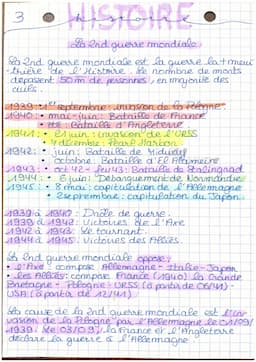 3
HISTOIRE
La 2nd guerre mondiale
La 2nd guerre mondiale est la guerre la + meur-
trière de l'Histoire. Le nombre de morts
dépassent 50 m de personnes, en majorité des
civils.
1939 : 1er septembre : invasion de la Pologne
1940 : mai-juin : Bataille de France
été : Bataille d'Angleterre
1941 : 21 juin : invasion de l'URSS
7 décembre : Pearl Harbor
1942 : juin : Bataille de Midway
octobre : Bataille d'El Alamein
1943 : oct 42 - fev 43 : Bataille de Stalingrad
1944 : 6 juin : Débarquement de Normandie
1945 : 8 mai : capitulation de l'Allemagne
2 septembre : capitulation du Japon
1939 à 1940 : Drôle de guerre.
1939 à 1942 : Victoires de l'Axe
1942 à 1943 : Le tournant.
1944 à 1945 : Victoires des Alliés.
La 2nd guerre mondiale oppose :
l'Axe : compose Allemagne - Italie - Japon
les Alliés : compose France (1940) la Grande
Bretagne - Pologne - URSS (à partir de 06/41) -
USA (à partir de 12/41)
La cause de la 2nd guerre mondiale est l'in-
vasion de la Pologne par l'Allemagne le 01/09/
1939. Le 03/09, la France et l'Angleterre
déclare la guerre à l'Allemagne.